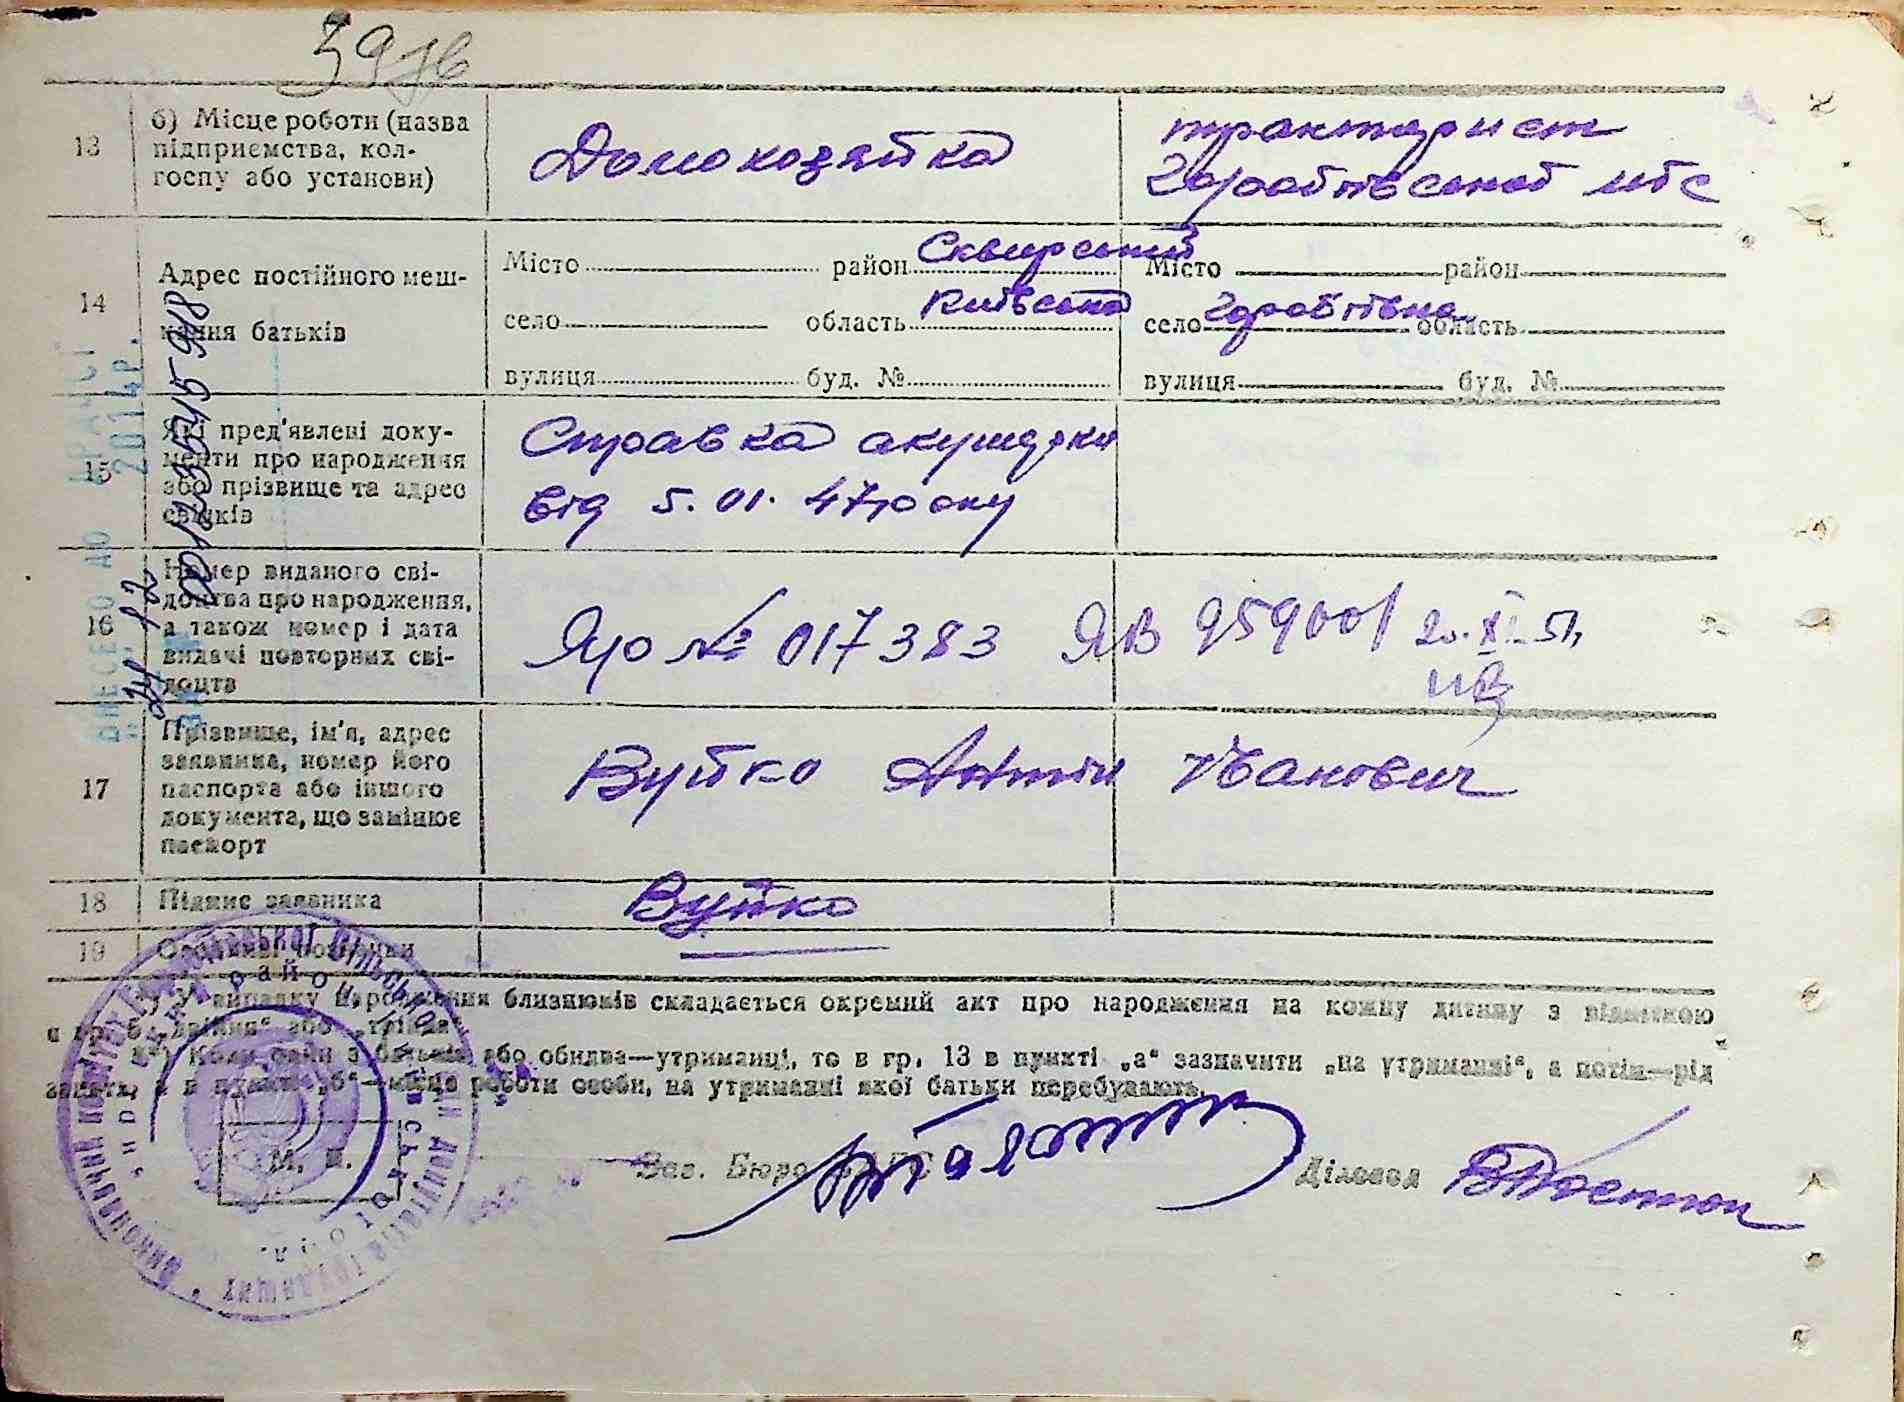 13
б) Місце роботи (назва
підприємства, кол-
госпу або установи)
Домохозяйка
тракторист
мтс
14
Адрес постійного меш-
кання батьків
Місто район Сквирський
село область Київська
вулиця буд. №
Місто район
село область
вулиця буд. №
15
Які пред'явлені доку-
менти про народження
або прізвище та адрес
свідків
Справка акушерки
від 5.01.47 року
16
Номер виданого сві-
доцтва про народження,
а також номер і дата
видачі повторних сві-
доцтв
ЯЮ № 017383
ЯВ 959001 20.XI-51
17
Прізвище, ім'я, адрес
заявника, номер його
паспорта або іншого
документа, що замінює
паспорт
Вуйко Антін Іванович
18
Підпис заявника
Вуйко
19
Особливі помітки
*) У випадку народження близнюків складається окремий акт про народження на кожну дитину з відміткою
в гр. 6 „двійня“ або „трійня“.
**) Коли один з батьків або обидва—утриманці, то в гр. 13 в пункті „а“ зазначити „на утриманні“, а потім—рід
занять, а в пункті „б“—місце роботи особи, на утриманні якої батьки перебувають.
М. П.
Зав. Бюро ЗАГС
Діловод
2014р.
00123545918